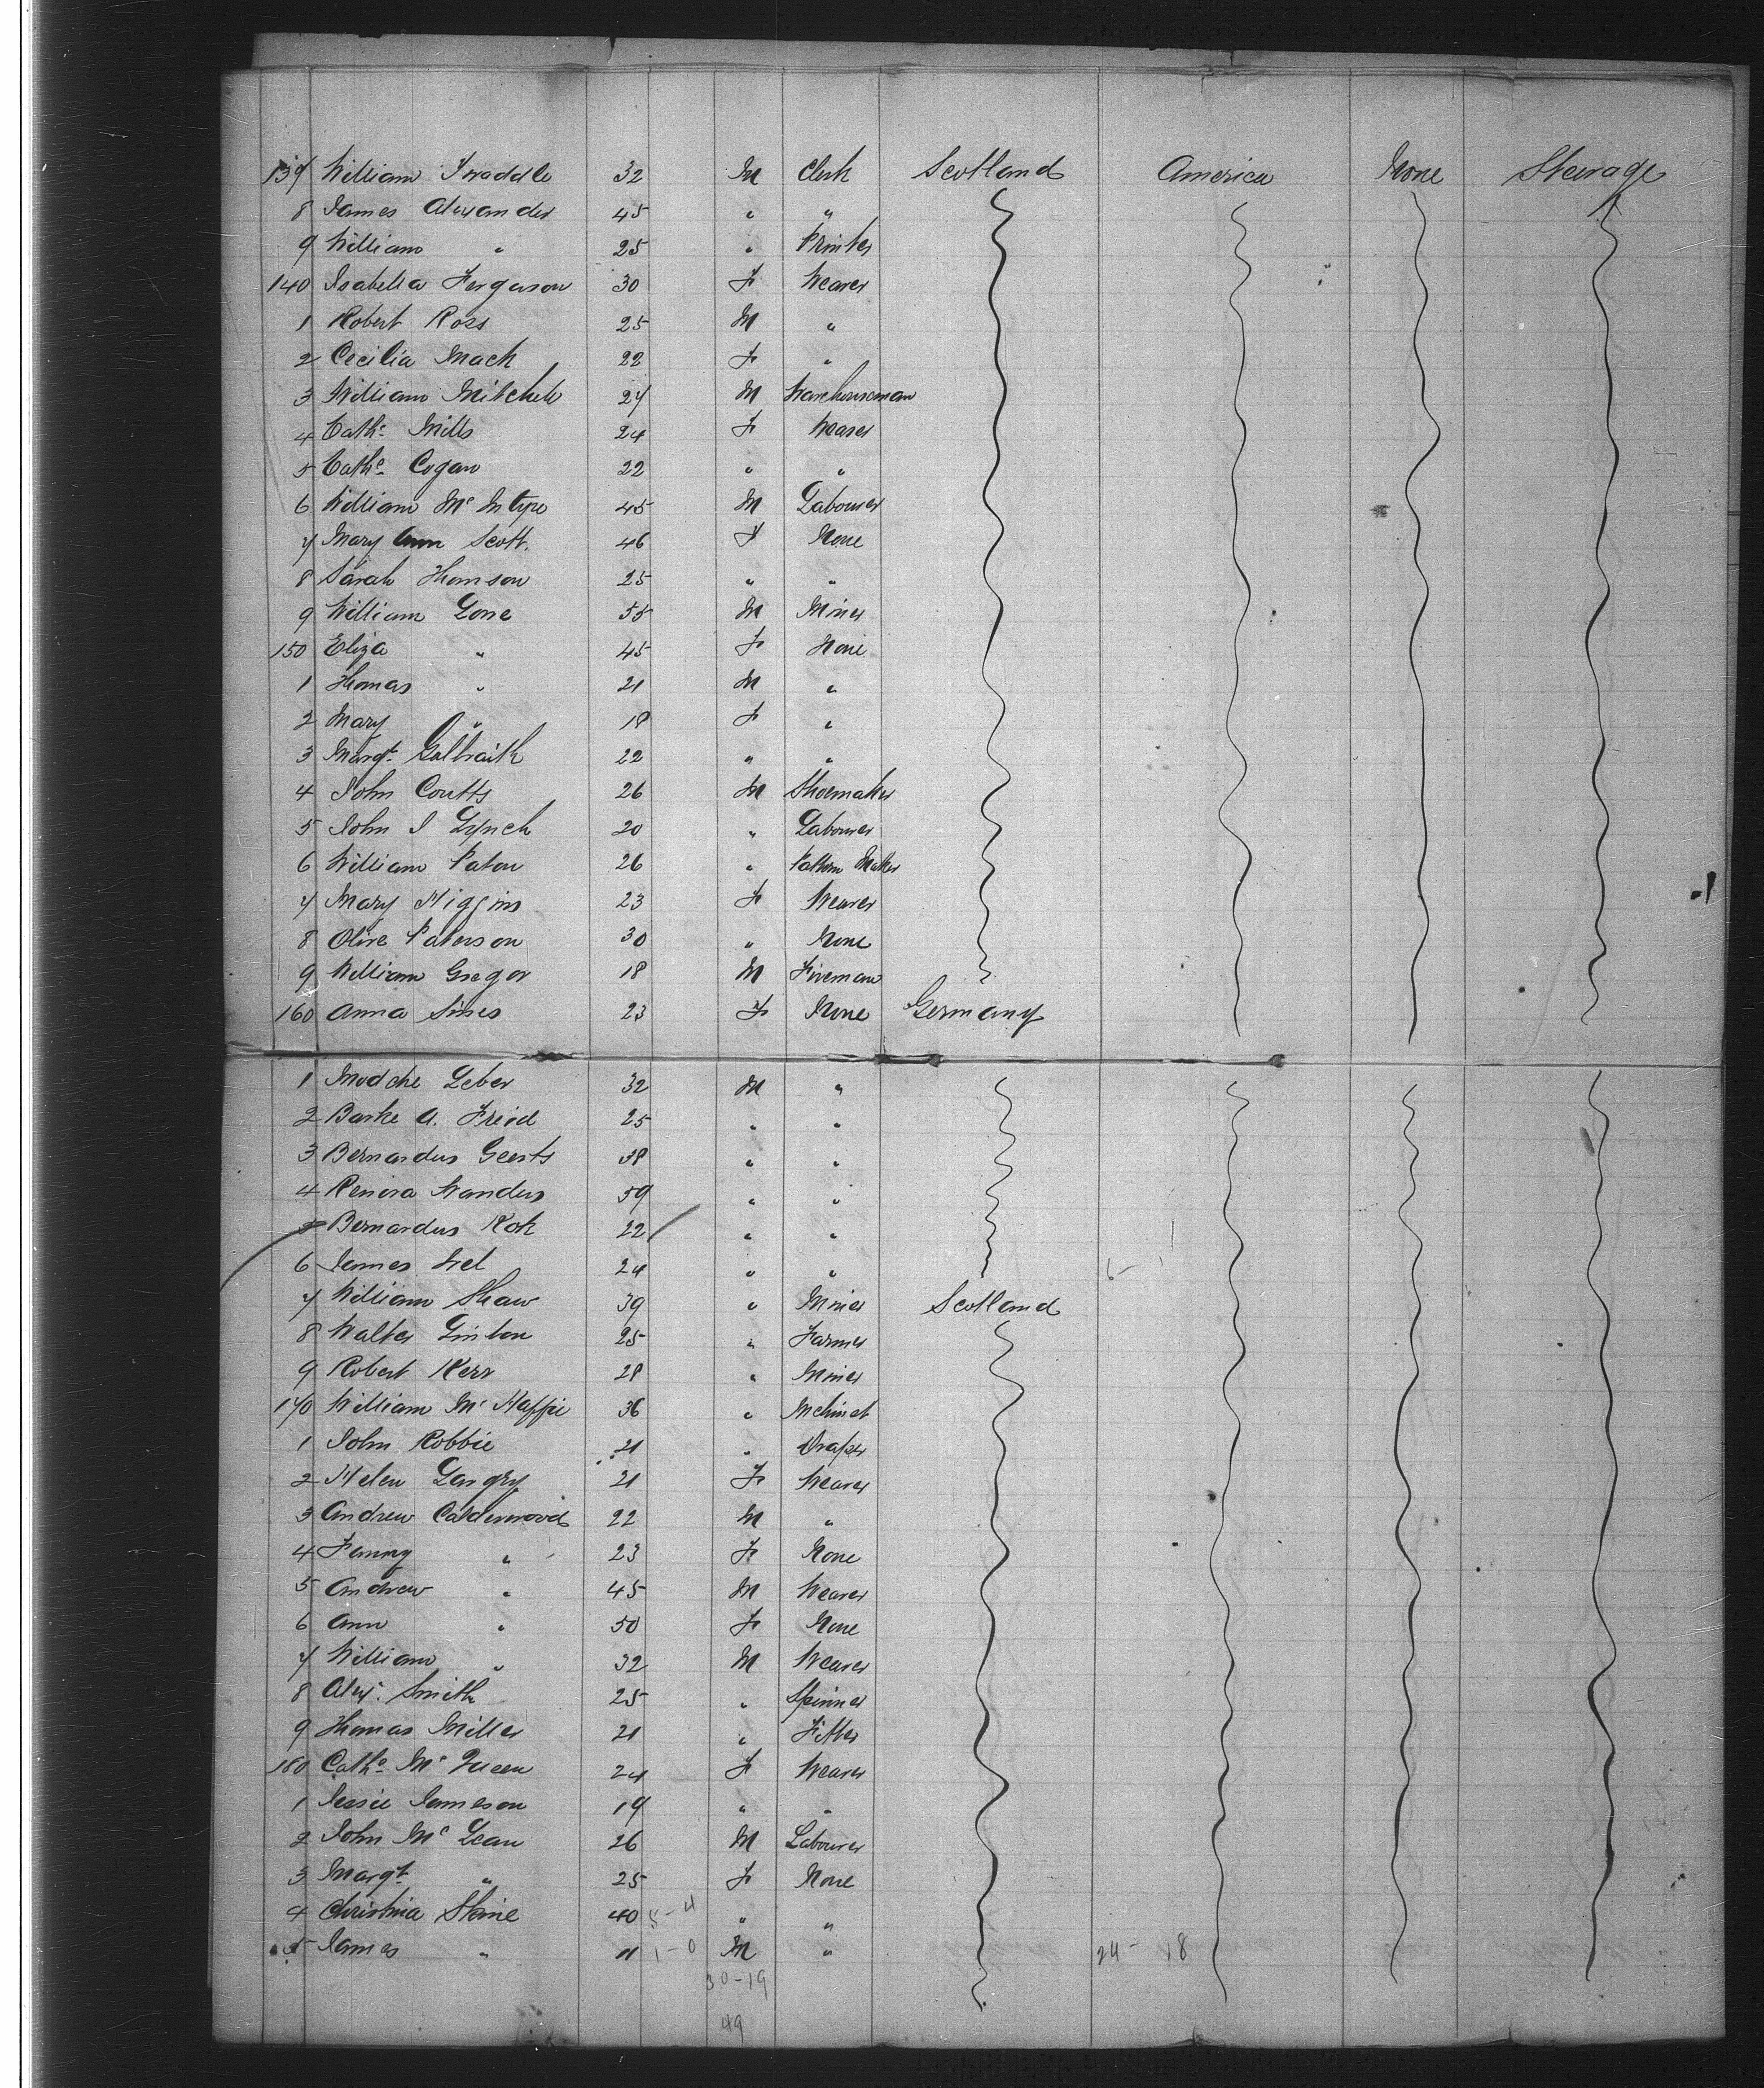 137 William Twaddle 32 M Clerk Scotland America None Steerage
8 James Alexander 45 " "
9 William " 25 " Printer
140 Isabella Ferguson 30 F Weaver
1 Robert Ross 25 M "
2 Cecilia Mack 22 F "
3 William Mitchell 27 M Warehouseman
4 Cathe Mills 24 F Weaver
5 Cathe Cogan 22 " "
6 William McIntyre 45 M Labourer
7 Mary Ann Scott. 46 F None
8 Sarah Thomson 25 " "
9 William Love 55 M Miner
150 Eliza " 45 F None
1 Thomas " 21 M "
2 Mary " 18 F "
3 Margt Galbraith 22 " "
4 John Coutts 26 M Shoemaker
5 John J Lynch 20 " Labourer
6 William Paton 26 " Pattern Maker
7 Mary Higgins 23 F Weaver
8 Olive Paterson 30 " None
9 William Gregor 18 M Fireman
160 Anna Sines 23 F None Germany
1 Modche Leber 32 M "
2 Barke A. Freid 25 " "
3 Bernardus Geerts 38 " "
4 Renira Wanders 59 " "
5 Bernardus Kok 22 " "
6 Jannes Wel 24 " "
7 William Shaw 39 " Miner Scotland
8 Walter Linton 25 " Farmer
9 Robert Kerr 28 " Miner
170 William McHaffie 36 " Mchinst
1 John Robbie 21 " Draper
2 Helen Langry 21 F Weaver
3 Andrew Calderwood 22 M "
4 Fanny " 23 F None
5 Andrew " 45 M Weaver
6 Ann " 50 F None
7 William " 32 M Weaver
8 Alexr. Smith 25 " Spinner
9 Thomas Miller 21 " Fitter
180 Cathe McQueen 24 F Weaver
1 Jessie Jameson 19 " "
2 John McLean 26 M Labourer
3 Margt " 25 F None
4 Christina Stone 40 5-4 " "
5 James " 11 1-0 M " 24- 18
30-19
49